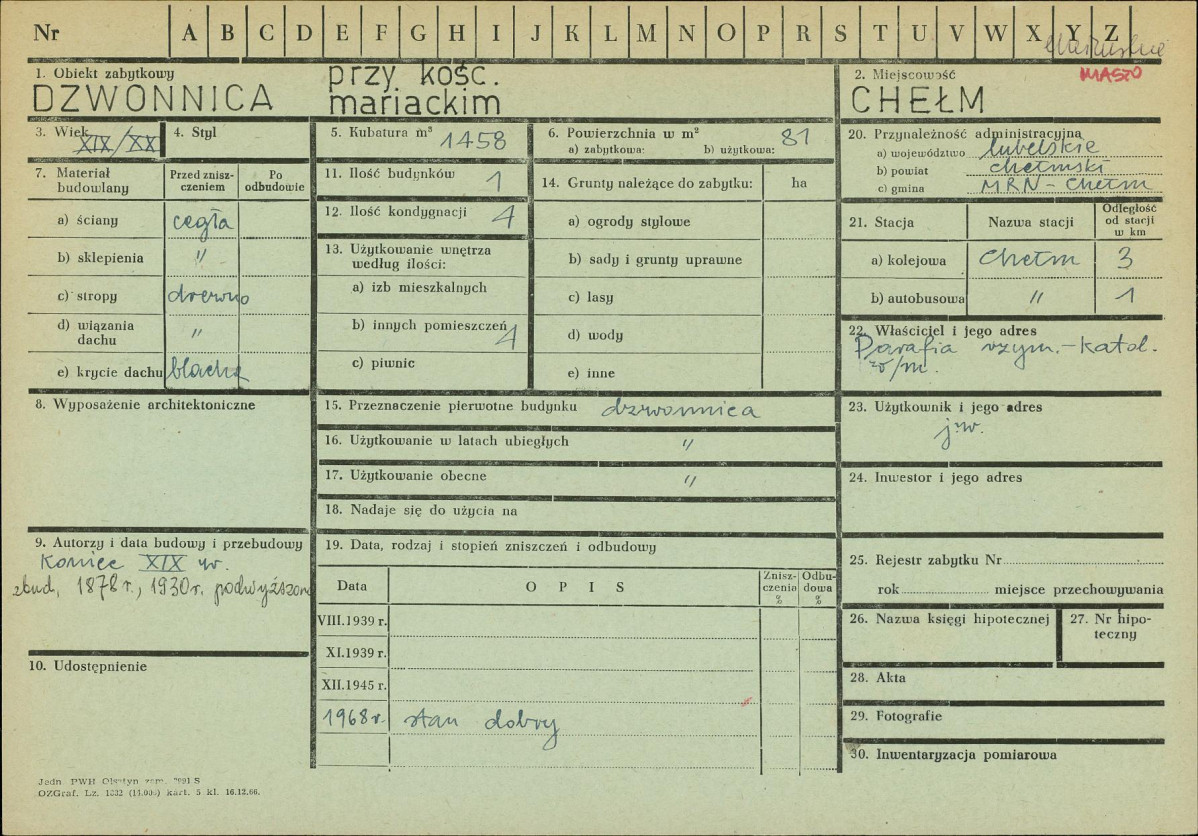 Nr A B C D E F G H I J K L M N O P R S T U V W X Y Z
MASZO
1. Obiekt zabytkowy
DZWONNICA
przy. kośc.
mariackim
2. Miejscowość
CHEŁM
3. Wiek XIX/XX
4. Styl
5. Kubatura m³ 1458
6. Powierzchnia w m² 81
a) zabytkowa: b) użytkowa:
7. Materiał budowlany
Przed zniszczeniem
Po odbudowie
a) ściany cegła
b) sklepienia "
c) stropy drewno
d) wiązania dachu "
e) krycie dachu blacha
8. Wyposażenie architektoniczne
9. Autorzy i data budowy i przebudowy
Koniec XIX w.
zbud, 1878 r., 1930r. podwyższon
10. Udostępnienie
11. Ilość budynków 1
12. Ilość kondygnacji 4
13. Użytkowanie wnętrza
według ilości:
a) izb mieszkalnych
b) innych pomieszczeń 4
c) piwnic
14. Grunty należące do zabytku: ha
a) ogrody stylowe
b) sady i grunty uprawne
c) lasy
d) wody
e) inne
15. Przeznaczenie pierwotne budynku dzwonnica
16. Użytkowanie w latach ubiegłych "
17. Użytkowanie obecne "
18. Nadaje się do użycia na
19. Data, rodzaj i stopień zniszczeń i odbudowy
Data O P I S Znisz-czenia % Odbu-dowa %
VIII.1939 r.
XI.1939 r.
XII.1945 r.
1968 r. stan dobry
20. Przynależność administracyjna
a) województwo lubelskie
b) powiat chełmski
c) gmina MRN - Chełm
21. Stacja Nazwa stacji Odległość od stacji w km
a) kolejowa Chełm 3
b) autobusowa " 1
22. Właściciel i jego adres
Parafia rzym.-katol.
w/m.
23. Użytkownik i jego adres
j.w.
24. Inwestor i jego adres
25. Rejestr zabytku Nr
rok miejsce przechowywania
26. Nazwa księgi hipotecznej
27. Nr hipo-
teczny
28. Akta
29. Fotografie
30. Inwentaryzacja pomiarowa
Jedn. PWH Olsztyn zam. S
OZGraf. Lz. 1332 (14.000) kart. 5 kl. 16.12.66.